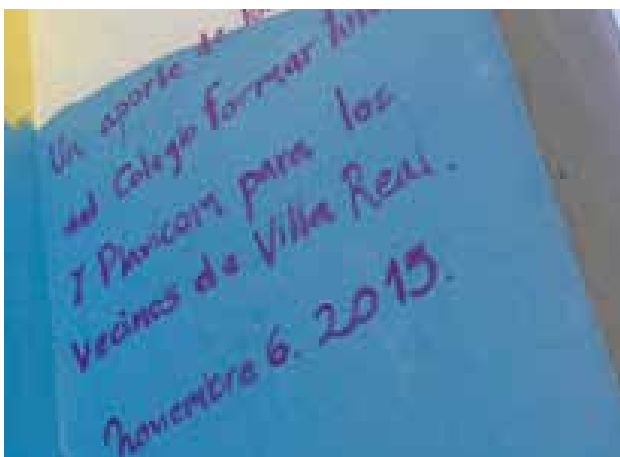 Un aporte de
del Colegio formar
Y para los
vecinos de Villa Real.
Noviembre 6. 2015.